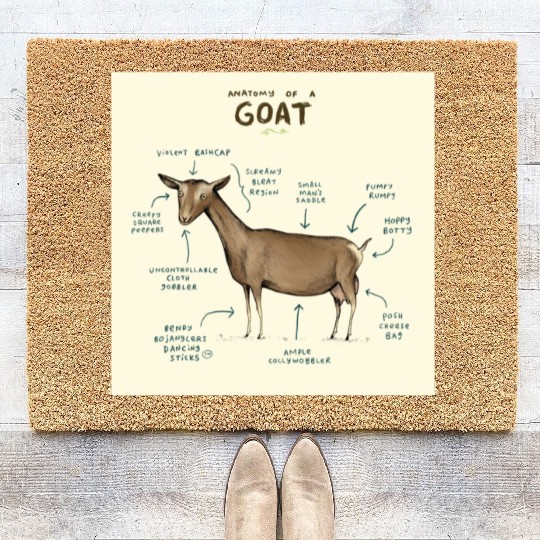 ANATOMY OF A
GOAT
VIOLENT BASHCAP
SCREAMY
BLEAT
REGION
SMALL
MAN'S
SADDLE
PUMPY
RUMPY
CREEPY
SQUARE
PEEPERS
HOPPY
BOTTY
UNCONTROLLABLE
CLOTH
GOBBLER
POSH
CHEESE
BAG
BENDY
BOJANGLERS
DANCING
STICKS
AMPLE
COLLYWOBBLER